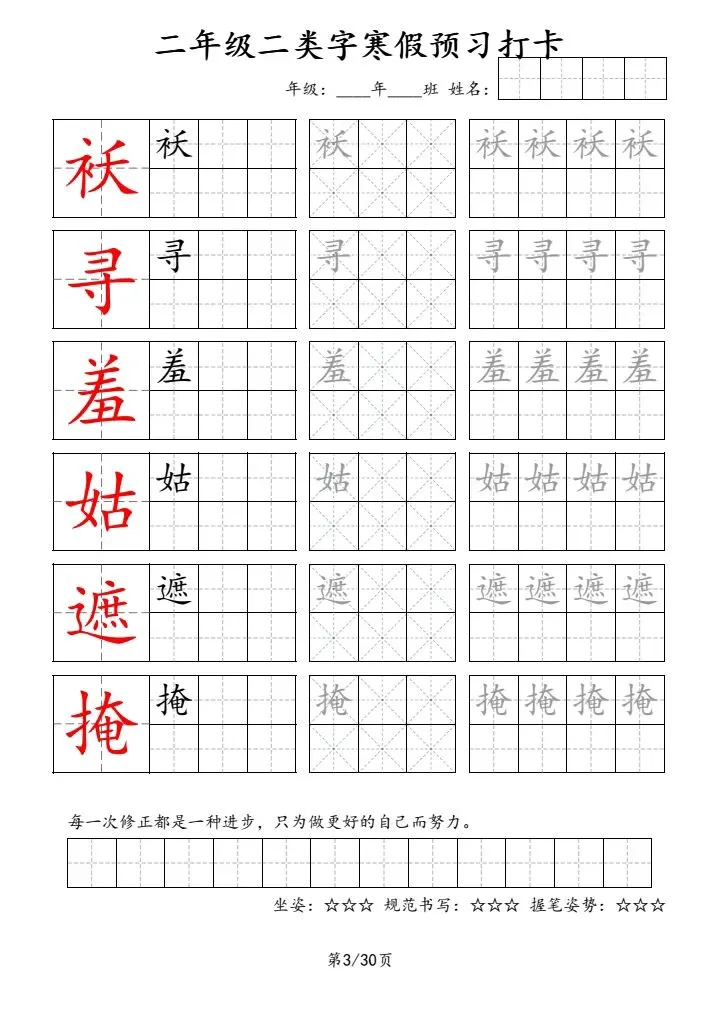 二年级二类字寒假预习打卡
年级：____年____班 姓名：
袄 袄 袄 袄 袄 袄 袄
寻 寻 寻 寻 寻 寻 寻
羞 羞 羞 羞 羞 羞 羞
姑 姑 姑 姑 姑 姑 姑
遮 遮 遮 遮 遮 遮 遮
掩 掩 掩 掩 掩 掩 掩
每一次修正都是一种进步，只为做更好的自己而努力。
坐姿：☆☆☆ 规范书写：☆☆☆ 握笔姿势：☆☆☆
第3/30页